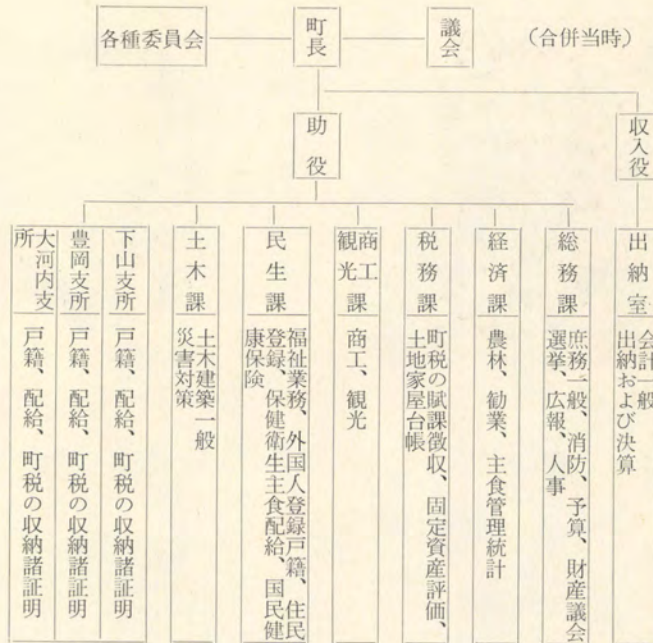 (合併当時)
議会
町長
各種委員会
収入役
助役
出納室
会計一般
出納および決算
総務課
庶務一般、消防、予算、財産議会
選挙、広報、人事
経済課
農林、勧業、主食管理統計
税務課
町税の賦課徴収、固定資産評価、
土地家屋台帳
商工
観光課
商工、観光
民生課
福祉業務、外国人登録戸籍、住民
登録、保健衛生主食配給、国民健
康保険
土木課
土木建築一般
災害対策
下山支所
戸籍、配給、町税の収納諸証明
豊岡支所
戸籍、配給、町税の収納諸証明
大河内支
所
戸籍、配給、町税の収納諸証明